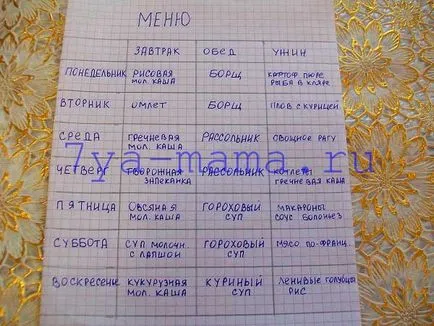 МЕНЮ
ЗАВТРАК ОБЕД УЖИН
ПОНЕДЕЛЬНИК РИСОВАЯ МОЛ. КАША БОРЩ КАРТОФ. ПЮРЕ РЫБА В КЛЯРЕ
ВТОРНИК ОМЛЕТ БОРЩ ПЛОВ С КУРИЦЕЙ
СРЕДА ГРЕЧНЕВАЯ МОЛ. КАША РАССОЛЬНИК ОВОЩНОЕ РАГУ
7ya-mama.ru
ЧЕТВЕРГ ТВОРОЖНАЯ ЗАПЕКАНКА РАССОЛЬНИК КОТЛЕТЫ ГРЕЧНЕВАЯ КАША
ПЯТНИЦА ОВСЯНАЯ МОЛ. КАША ГОРОХОВЫЙ СУП МАКАРОНЫ СОУС БОЛОНЬЕЗ
СУББОТА СУП МОЛОЧН. С ЛАПШОЙ ГОРОХОВЫЙ СУП МЯСО ПО-ФРАНЦ.
ВОСКРЕСЕНЬЕ КУКУРУЗНАЯ МОЛ. КАША КУРИНЫЙ СУП ЛЕНИВЫЕ ГОЛУБЦЫ РИС